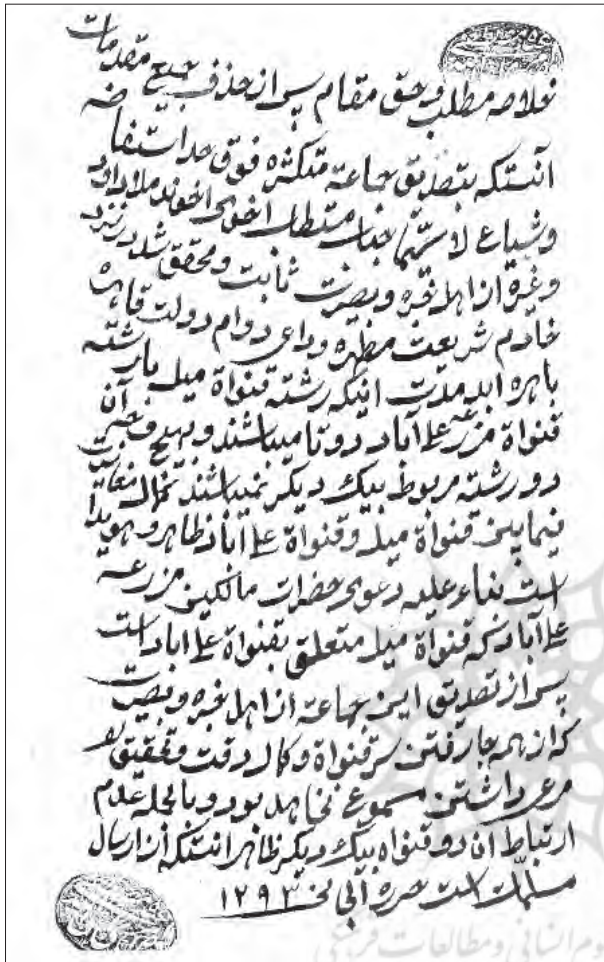 خلاصه مطلب و حق مقام پس از حذف جمیع مقدمات
آنستکه بتصدیق جماعة متکثره فوق حد استفاضه
و شیاع لا سیما جناب مستطاب اخوی اخوند ملا داود
و غیره از اهل خبره و بصیرت ثابت و محقق شد در نزد
خادم شریعت مطهره و داعی دوام دولت قاهره
باهره ابد مدت اینکه رشته قنواة میله با رشته
قنواة مزرعه علی‌آباد دو تا میباشند و بهیچ وجه آن
دو رشته مربوط بیک دیگر نمیباشند کمال مغایرت
فیمابین قنواة میله و قنواة علی‌اباد ظاهر و هویدا
است بناء علیه دعوی حضرات مالکین مزرعه
علی‌آباد که قنواة میله متعلق بقنواة علی‌اباد است
پس از تصدیق این جماعة از اهل خبره و بصیرت
که از همه جا رفتن سر قنواة و کمال دقت و تحقیق
مرعی داشتن مسموع نخواهد بود و بالجمله عدم
ارتباط ان دو قنواة بیک دیگر ظاهر انستکه از ارسال
مسلمات است حرره ۱۲۹۳
وم انسانی و مطالعات فرهنگی